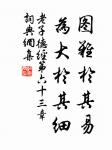 圖難於其易
為大於其細
老子德經第六十三章
詞典網集